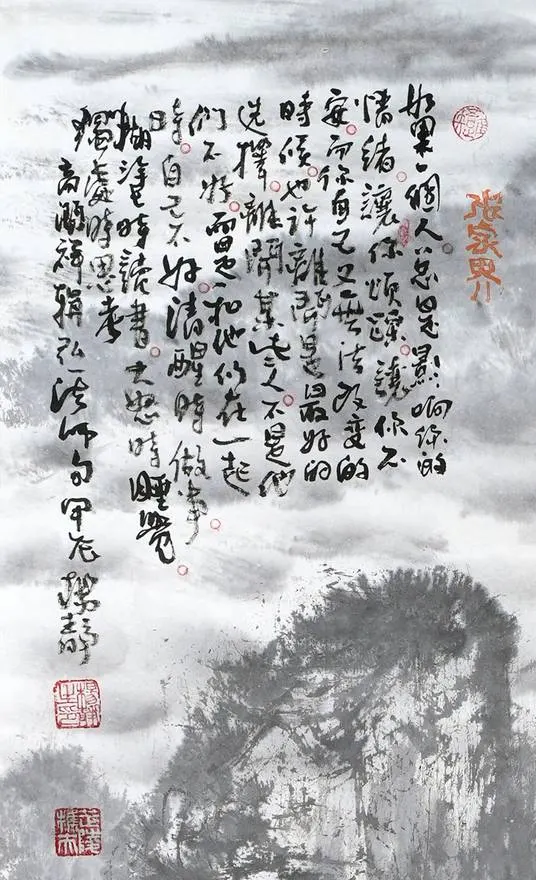 张家界
如果一個人总是影响你的
情緒讓你煩躁讓你不
安而你自己又無法改变的
時候也许離開是最好的
选擇離開某些人不是他
们不好而是和他们在一起
時自己不好清醒時做事
糊塗時读書大怒時睡覺
獨處時思考
辑弘一法师句甲辰杨静